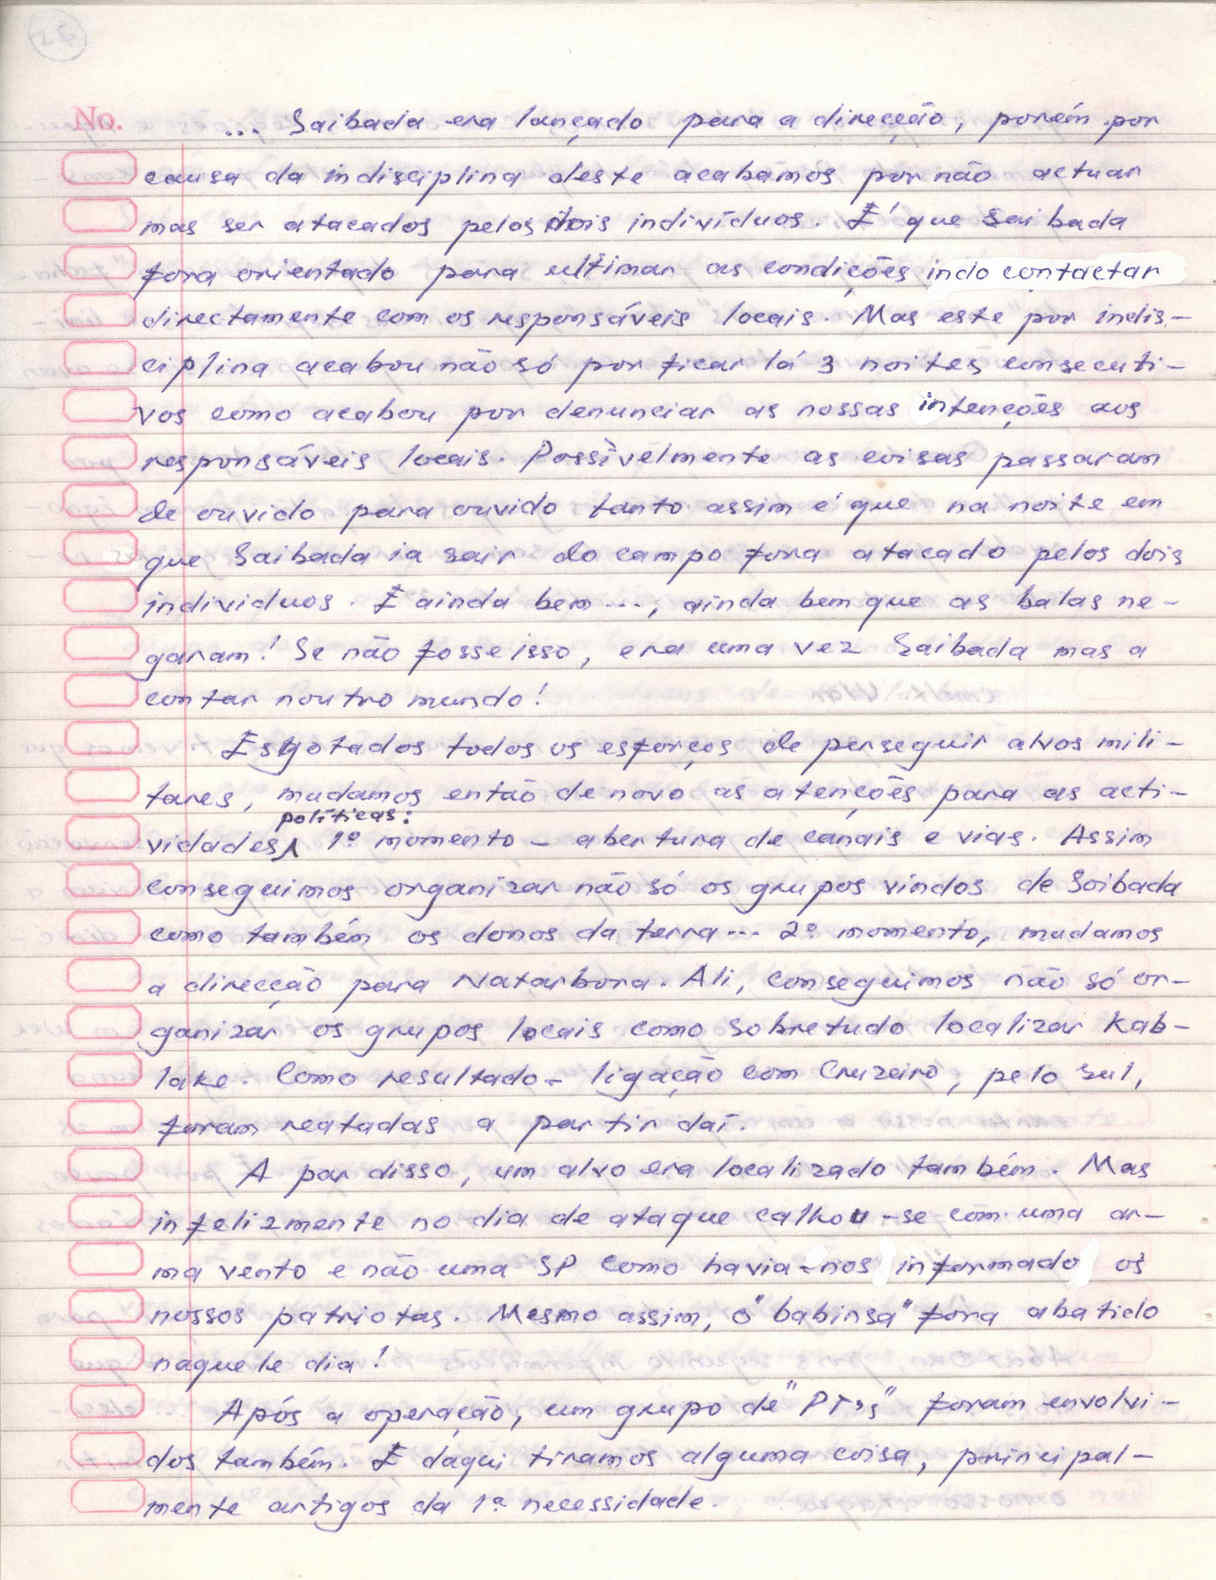 No.
... Saibada era lançado para a direcção, porém por
causa da indisciplina deste acabámos por não actuar
mas ser atacados pelos dois indivíduos. É que Saibada
fora orientado para ultimar as condições indo contactar
directamente com os responsáveis locais. Mas este por indis-
ciplina acabou não só por ficar lá 3 noites consecuti-
vos como acabou por denunciar as nossas intenções aos
responsáveis locais. Possìvelmente as coisas passaram
de ouvido para ouvido tanto assim é que na noite em
que Saibada ia sair do campo fora atacado pelos dois
individuos. E ainda bem..., ainda bem que as balas ne-
garam! Se não fosse isso, era uma vez Saibada mas a
contar noutro mundo!
Esgotados todos os esforços de perseguir alvos mili-
tares, mudamos então de novo as atenções para as acti-
políticas:
vidades 1º momento - abertura de canais e vias. Assim
conseguimos organizar não só os grupos vindos de Soibada
como também os donos da terra... 2º momento, mudamos
a direcção para Natarbora. Ali, conseguimos não só or-
ganizar os grupos locais como sobretudo localizar Kab-
lake. Como resultado - ligação com Cruzeiro, pelo sul,
foram reatadas a partir daí.
A par disso, um alvo era localizado também. Mas
infelizmente no dia de ataque calhou-se com uma ar-
ma vento e não uma SP como havia-nos informado os
nossos patriotas. Mesmo assim, o "babinsa" fora abatido
naquele dia!
Após a operação, um grupo de "PT's" foram envolvi-
dos também. E daqui tiramos alguma coisa, principal-
mente artigos da 1ª necessidade.